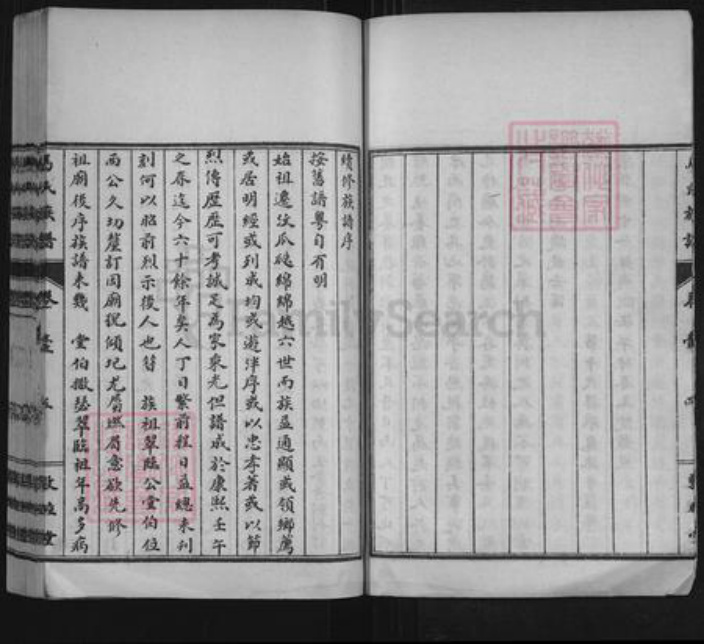 續修族譜序
按舊譜粵自有明
始祖遷汶瓜瓞綿綿越六世而族益通顯或領鄉薦
或居明經或列成均或遊泮序或以忠孝著或以節
烈傳歷歷可考誠足為家乘光但譜成於康熙壬午
之春迄今六十餘年矣人丁日繁前程日益總未刊
刻何以昭前烈示後人也 族祖翠臨公堂伯位
西公久切釐訂因廟貌傾圮尤屬 意欲先修
祖廟後序族譜未幾 堂伯撒瑟翠臨祖年高多病
氏族譜
FamilySearch